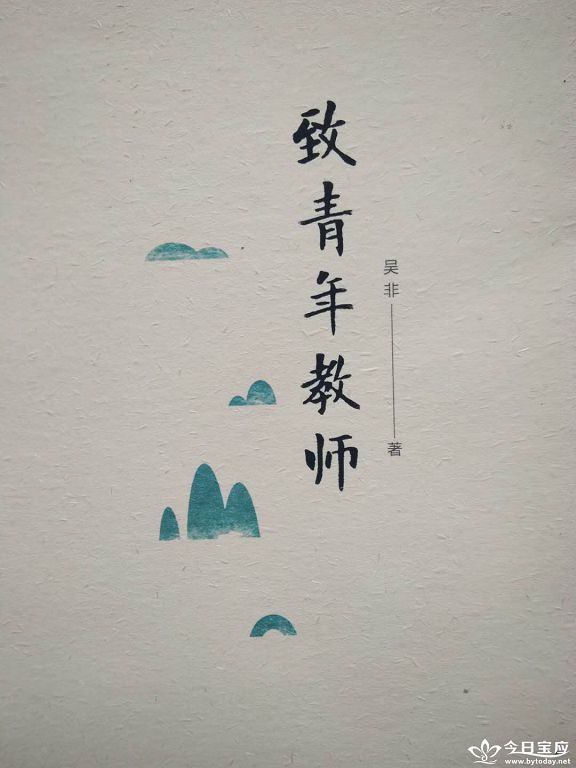 致青年教师
吴非 著
今日宝应
www.bytoday.net